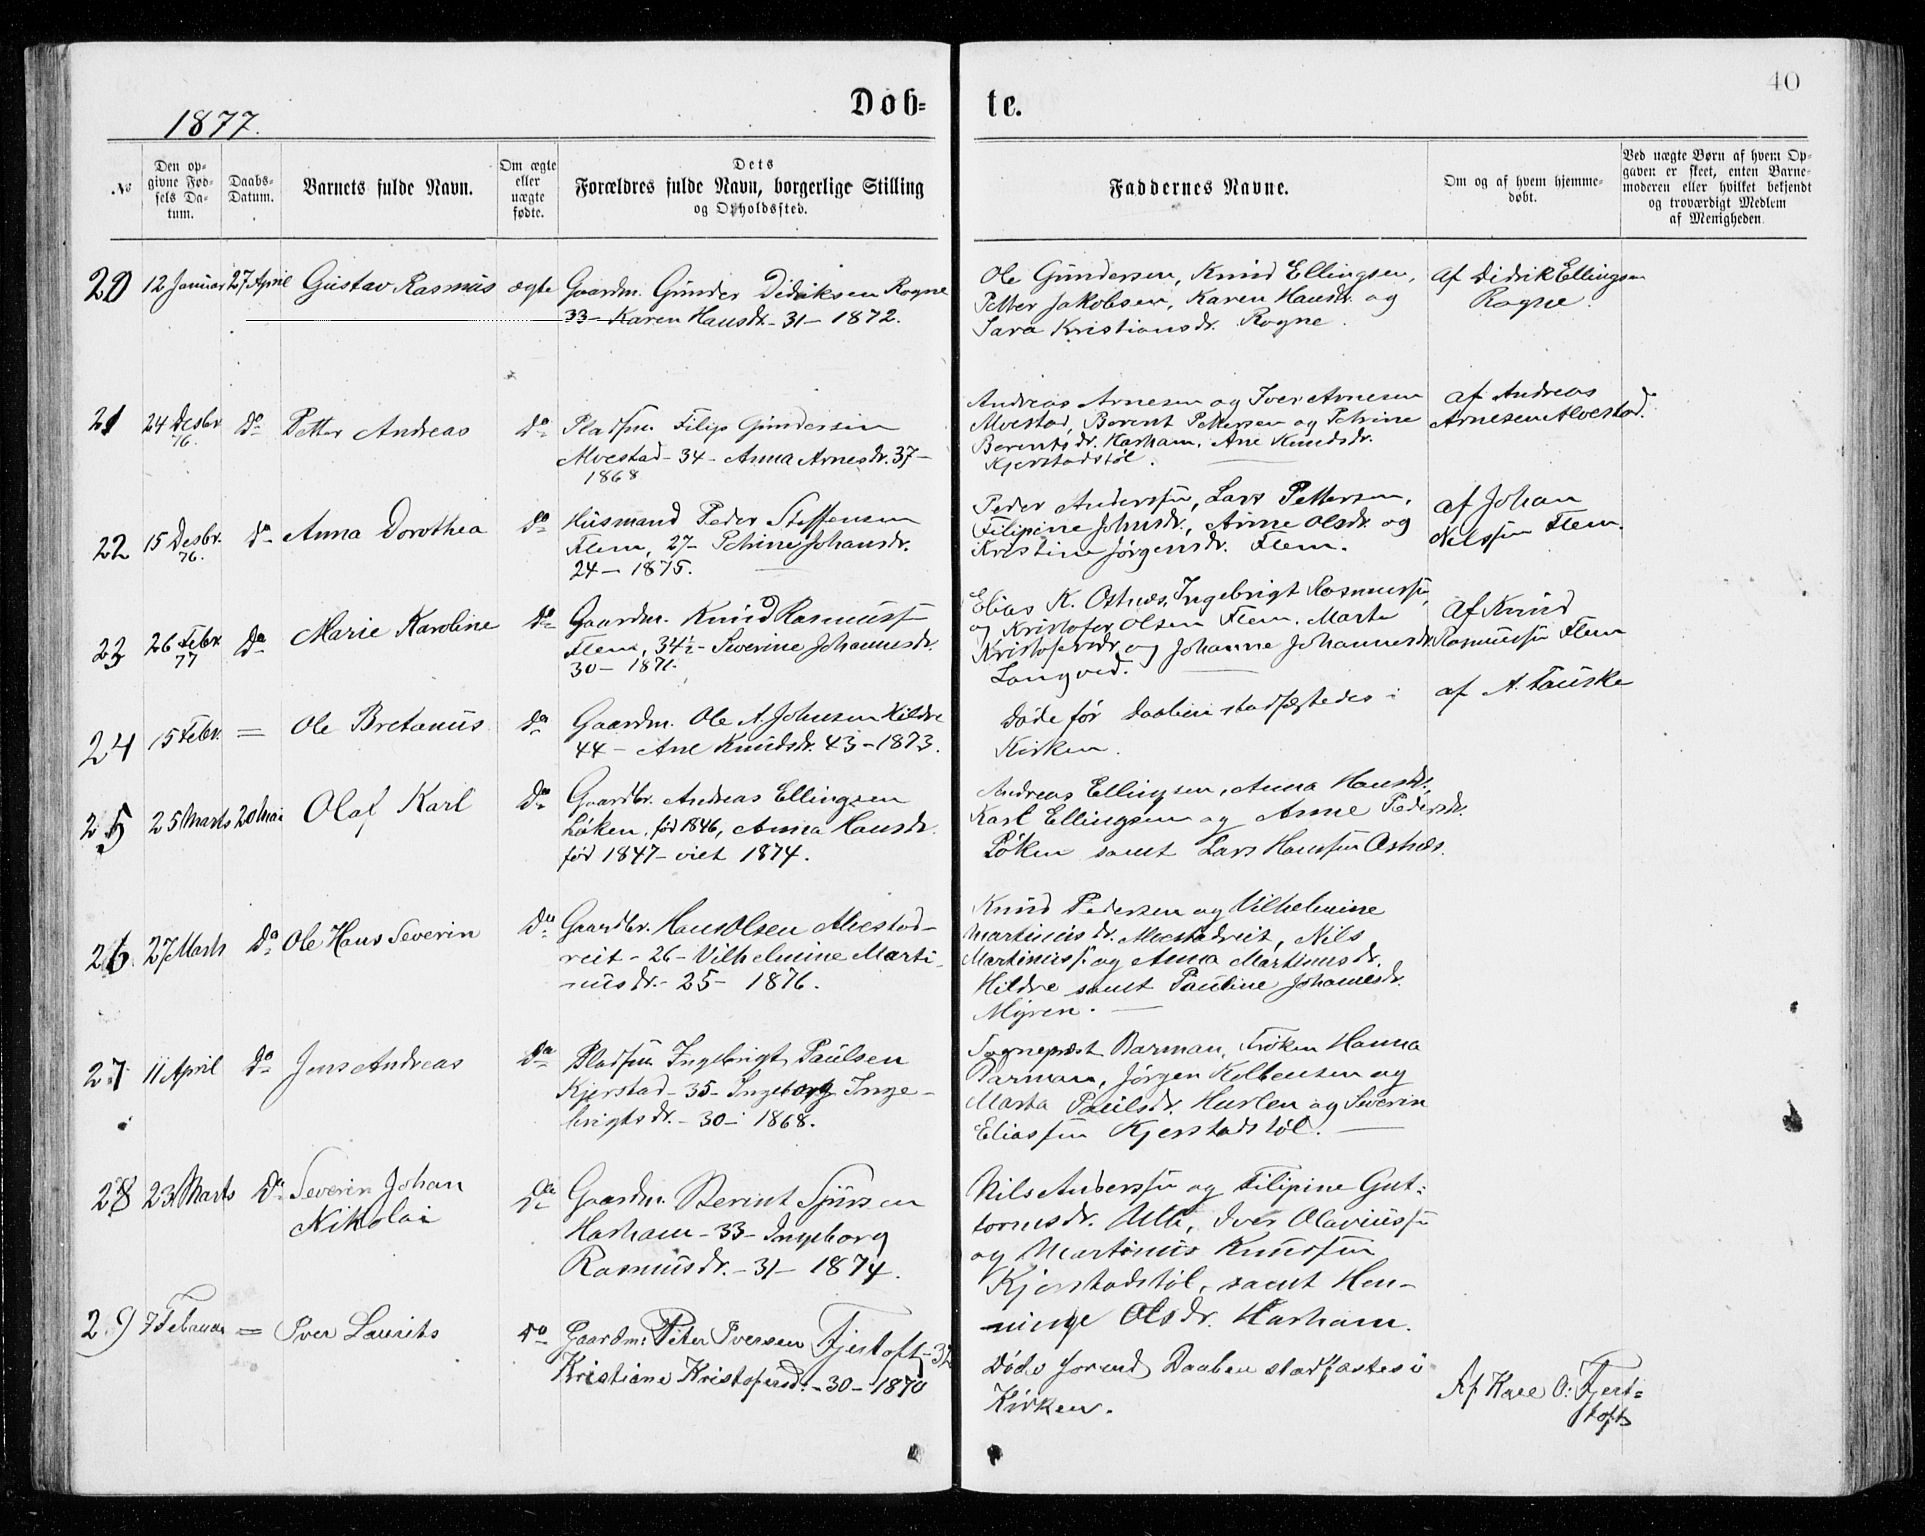 40
1877.
Døb-
te.
No
Den op-
givne Fød-
sels Da-
tum.
Daabs-
Datum.
Barnets fulde Navn.
Om ægte
eller
uægte
fødte.
Dets
Forældres fulde Navn, borgerlige Stilling
og Opholdssted.
Faddernes Navne.
Om og af hvem hjemme-
døbt.
Ved uægte Børn af hvem Op-
gaven er skeet, enten Barne-
moderen eller hvilket bekjendt
og troværdigt Medlem
af Menigheden.
20
12 Januar
27 April
Gustav Rasmus
ægte
Gaardm. Gunder Didriksen Rogne
33 - Karen Hansdr. - 31 - 1872.
Ole Gundersen, Knud Ellingsen,
Petter Jakobsen, Karen Hansdr. og
Sara Kristiansdr. Rogne.
af Didrik Ellingsen
Rogne.
21
24 Desbr.
76.
Do
Petter Andreas
Do
Pladsm. Filip Gundersen
Alvestad - 34 - Anna Arnesdr. 37 -
1868
Andreas Arnesen og Iver Arnesen
Alvestad, Berent Pettersen og Petrine
Berentsdr. Harham, Ane Knudsdr.
Kjerstadstøl.
af Andreas
Arnesen Alvestad.
22
15 Desbr.
76.
Do
Anna Dorothea
Do
Husmand Peder Steffensen
Flem, 27 - Petrine Johansdr.
24 - 1875.
Peder Anderssen, Lars Pettersen,
Filipine Johnsdr., Anne Olsdr. og
Kristine Jørgensdr. Flem.
af Johan
Nilssen Flem.
23
26 Febr.
77
Do
Marie Karoline
Do
Gaardm. Knud Rasmussen
Flem, 34½ - Severine Johannesdr.
30 - 1871.
Elias K. Østnes, Ingebrigt Rasmussen,
og Kristofer Olsen Flem, Marte
Kristofersdr. og Johanne Johannesdr.
Longved.
af Knud
Rasmussen Flem
24
15 Febr.
=
Ole Bretanus
Do
Gaardm. Ole A. Johnsen Hildre
44 - Ane Knudsdr. 43 - 1873.
Døde før Daaben stadfæstedes i
Kirken.
af A. Tauske
25
25 Marts
20 Mai
Olaf Karl
Do
Gaardbr. Andreas Ellingsen
Løken, fød 1846, Anna Hansdr.
fød 1847 - viet 1874.
Andreas Ellingsen, Anna Hansdr.,
Karl Ellingsen og Anne Pedersdr.
Løken samt Lars Hanssen Østnes.
26
27 Marts
Do
Ole Hans Severin
Do
Gaardbr. Hans Olsen Alvestad-
reit - 26 - Vilhelmine Marti-
nusdr. - 25 - 1876.
Knud Pedersen og Vilhelmine
Martinusdr. Alvestadreit, Nils
Martinuss. og Anna Martinusdr.
Hildre samt Pauline Johannesdr.
Myren.
27
11 April
Do
Jens Andreas
Do
Pladsm. Ingebrigt Paulsen
Kjerstad - 35 - Ingeborg Inge-
brigtsdr. - 30 - 1868.
Sognepræst Barman, Frøken Hanna
Barman, Jørgen
Marta Paulsdr. Hurlen og Severin
Eliassen Kjerstadstøl.
28
23 Marts
Do
Severin Johan
Nikolai
Do
Gaardm. Berent Sjursen
Harham - 33 - Ingeborg
Rasmusdr. - 31 - 1874.
Nils Anderssen og Filipine Gut-
tormsdr. Ulle, Iver Olaviussen
og Martinus Knudssen
Kjerstadstøl, samt Hen-
ninge Olsdr. Harham.
29
7 Februar
=
Iver Laurits
Do
Gaardm. Peter Iversen Fjertoft - 32
Kristiane Kristofersd. - 30 - 1870
Døde forend Daaben stadfæstes i
Kirken.
Af Knee O. Fjert-
toft